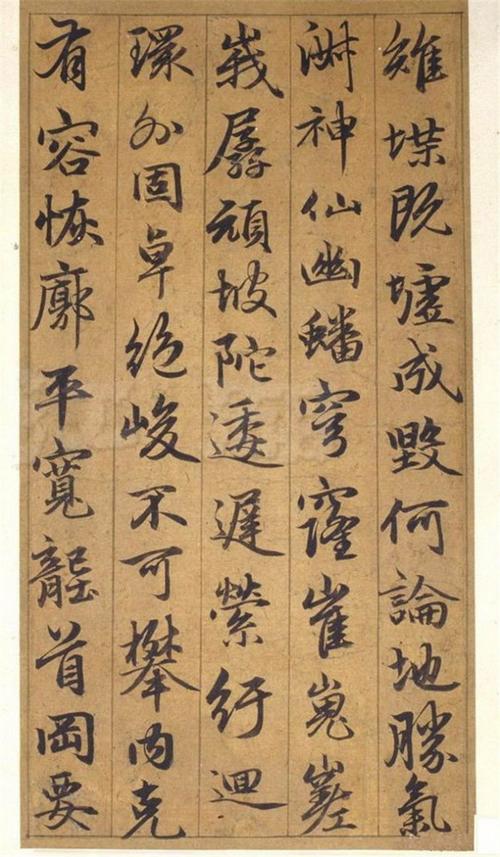 雉堞既墟成毀何論地勝氣
淑神仙幽蟠穹窿崔嵬嵯
峩孱頑坡陀逶遲縈紆迴
環外固卓絕峻不可攀内克
有容恢廓平寬壟首岡要